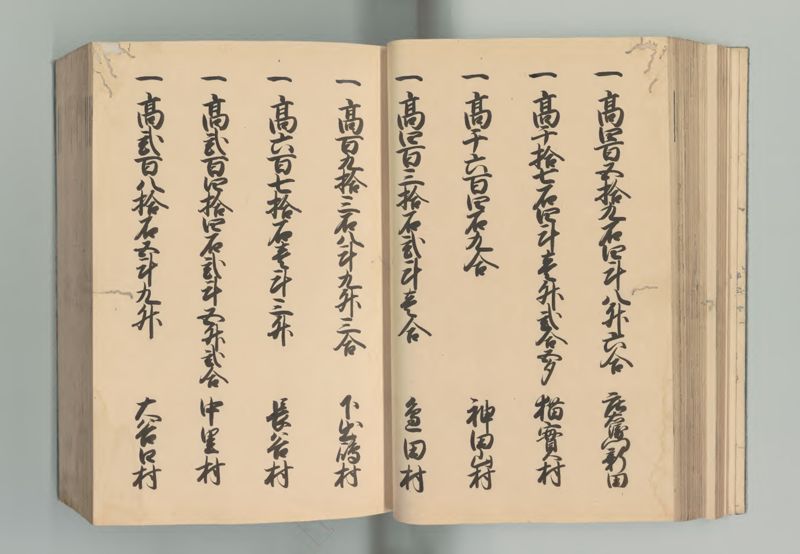 一高四百五拾九石四斗八升六合 新田
一高千拾七石四斗壱升弐合五夕 猫實村
一高千六百四石九合 神田山村
一高四百三拾石弐斗壱合 邊田村
一高百九拾三石八斗九升三合 下出嶋村
一高六百七拾石壱斗三升 長谷村
一高弐百四拾四石弐斗五升弐合 中里村
一高弐百八拾石五斗九升 大谷口村